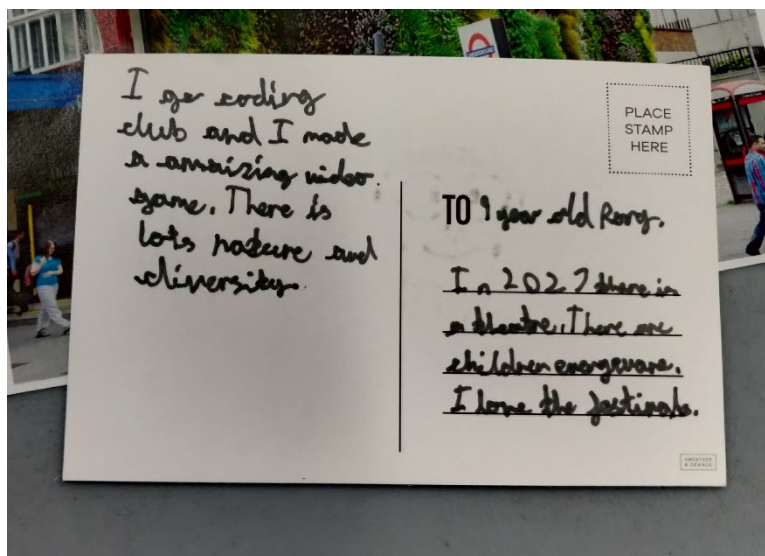 I go coding
club and I made
a amaizing video
game. There is
lots nature and
diversity.
PLACE
STAMP
HERE
TO 9 year old Rory.
In 2027 there is
a theatre. There are
children energeware.
I love the fastivals.
SWEETZER
& ORANGE
UNDERGROUND